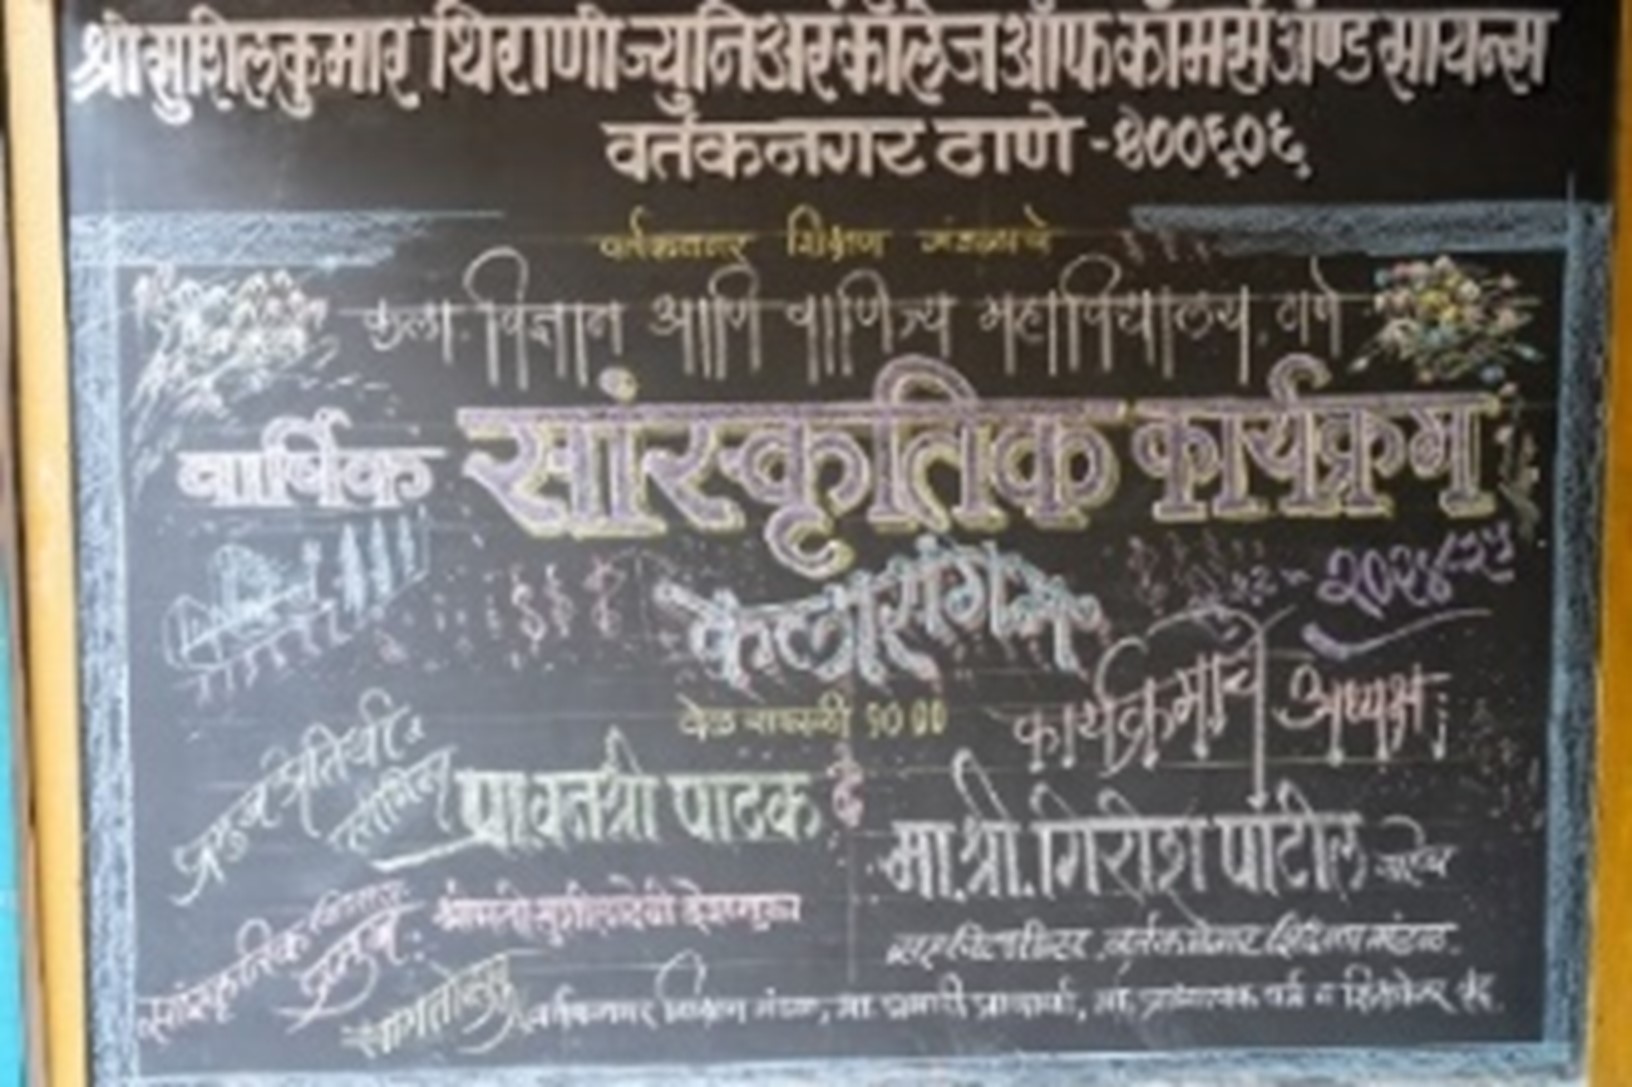 श्री सुशिलकुमार थिराणी ज्युनिअर कॉलेज ऑफ कॉमर्स अॅण्ड सायन्स
वर्तकनगर ठाणे -४००६०६
वर्तकनगर शिक्षण मंडळाचे
कला. विज्ञान आणि वाणिज्य महाविद्यालय. ठाणे
वार्षिक सांस्कृतिक कार्यक्रम
२०२४-२५
कलारंगम
वेळ सकाळी १०
कार्यक्रमाचे अध्यक्ष :
पाठक
मा. श्री. गिरीश पाटील साहेब
सांस्कृतिक विभाग
प्रमुख :
श्रीमती देशमुख
वर्तकनगर शिक्षण मंडळ.
वर्तकनगर शिक्षण मंडळ, मा. प्रभारी प्राचार्या, मा. प्राध्यापक वर्ग व शिक्षकेतर